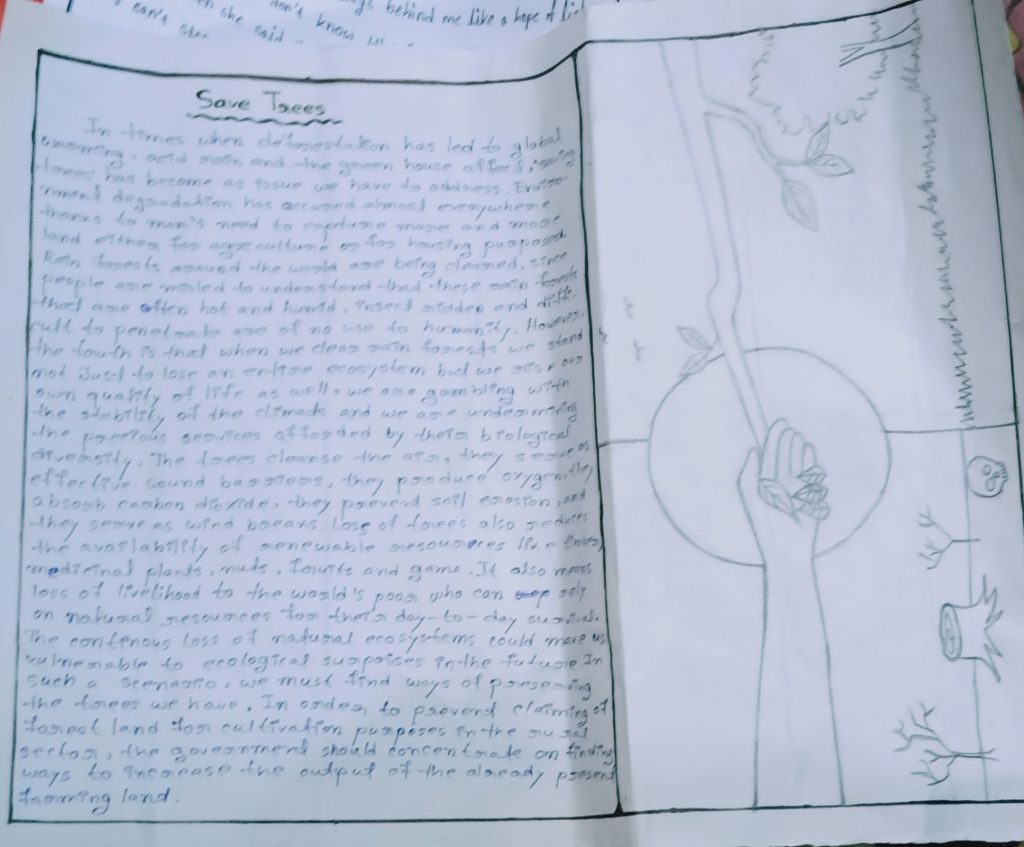 behind me like a hope of
can't
she said
don't know
Save Trees
In times when deforestation has led to global
warming, acid rain and the green house affect, saving
trees has become as issue we have to address. Enviro-
rnment degradation has accured almost everywhere
thanks to man's need to capture more and more
land either for agriculture or for housing purposed
Rain forests around the world are being cleared, since
people are misled to understand that these rain forests
that are often hot and humid, insect ridden and diffi-
cult to penetrate are of no use to humanity. However,
the truth is that when we clear rain forests we stand
not Just to lose an entire ecosystem but we risk our
own quality of life as well, we are gambling with
the stability of the climate and we are undermining
the precious services afforded by their biological
diversity. The trees cleanse the air, they serve as
effective sound barriers, they produce oxygen, they
absorb carbon dioxide, they prevent soil erosion, and
they serve as wind breaks. Loss of trees also reduces
the availability of renewable resources like timber,
medicinal plants, nuts, fruits and game. It also means
loss of livelihood to the world's poor who can rely
on natural resources for their day-to-day survival.
The continous loss of natural ecosystems could make us
vulnerable to ecological surprises in the future In
such a scenario, we must find ways of preserving
the trees we have. In order to prevent claiming of
forest land for cultivation purposes in the rural
sector, the government should concentrate on finding
ways to increase the output of the already present
farming land.